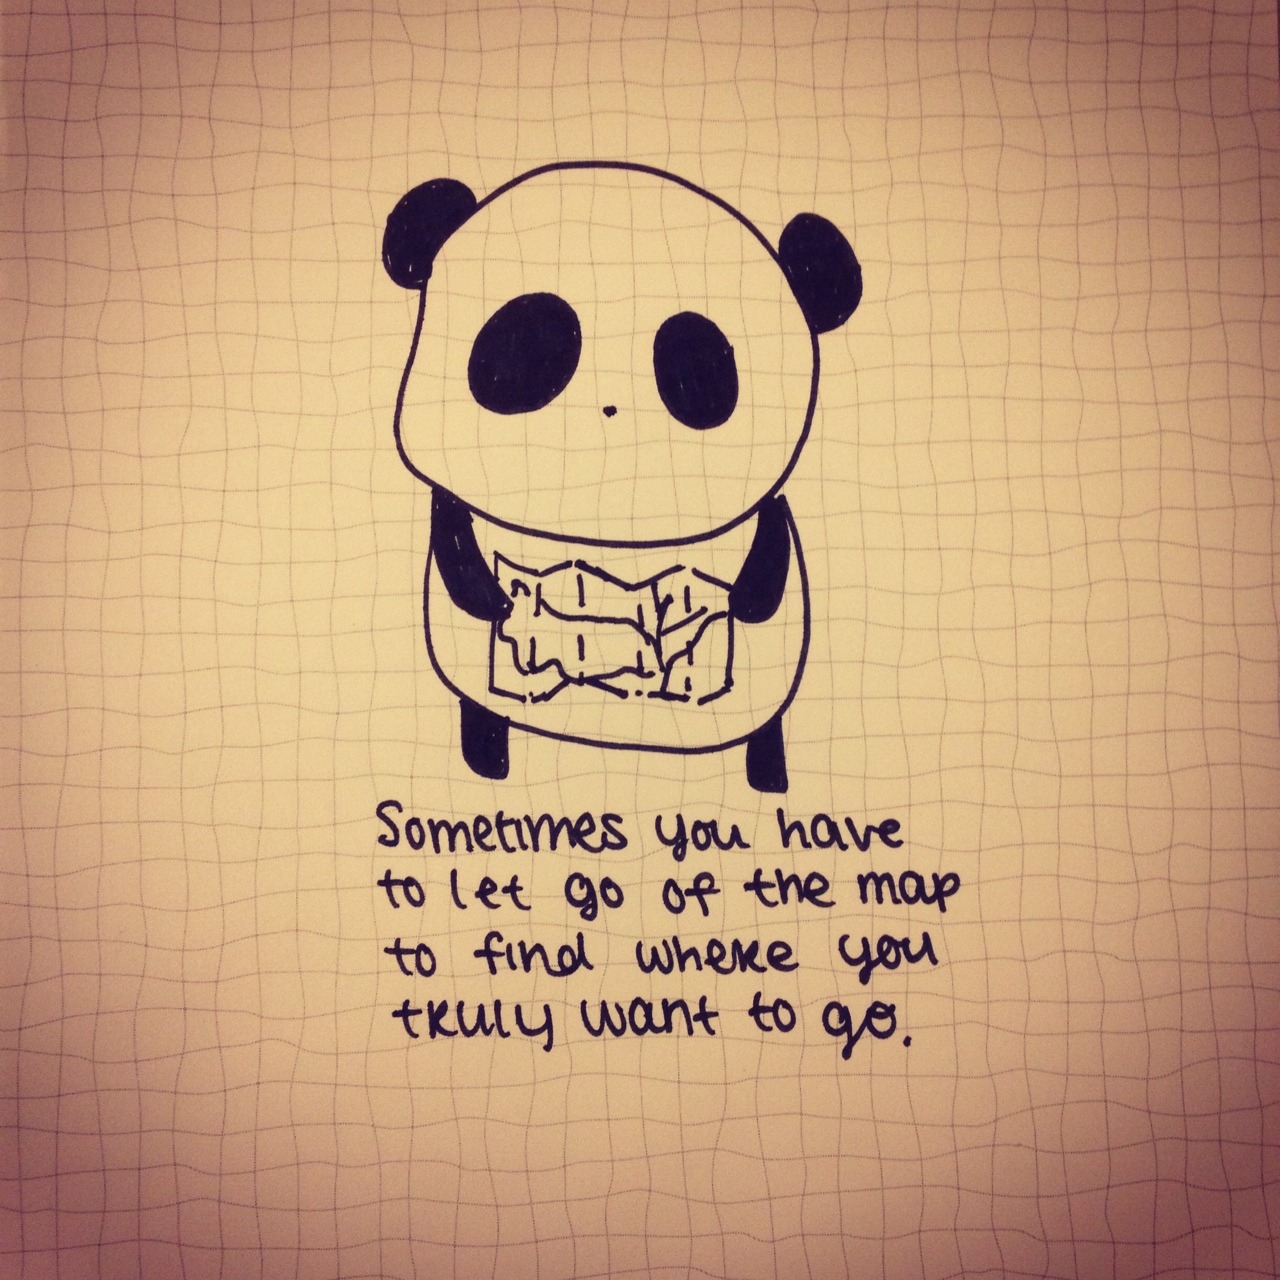 Sometimes you have
to let go of the map
to find where you
truly want to go.